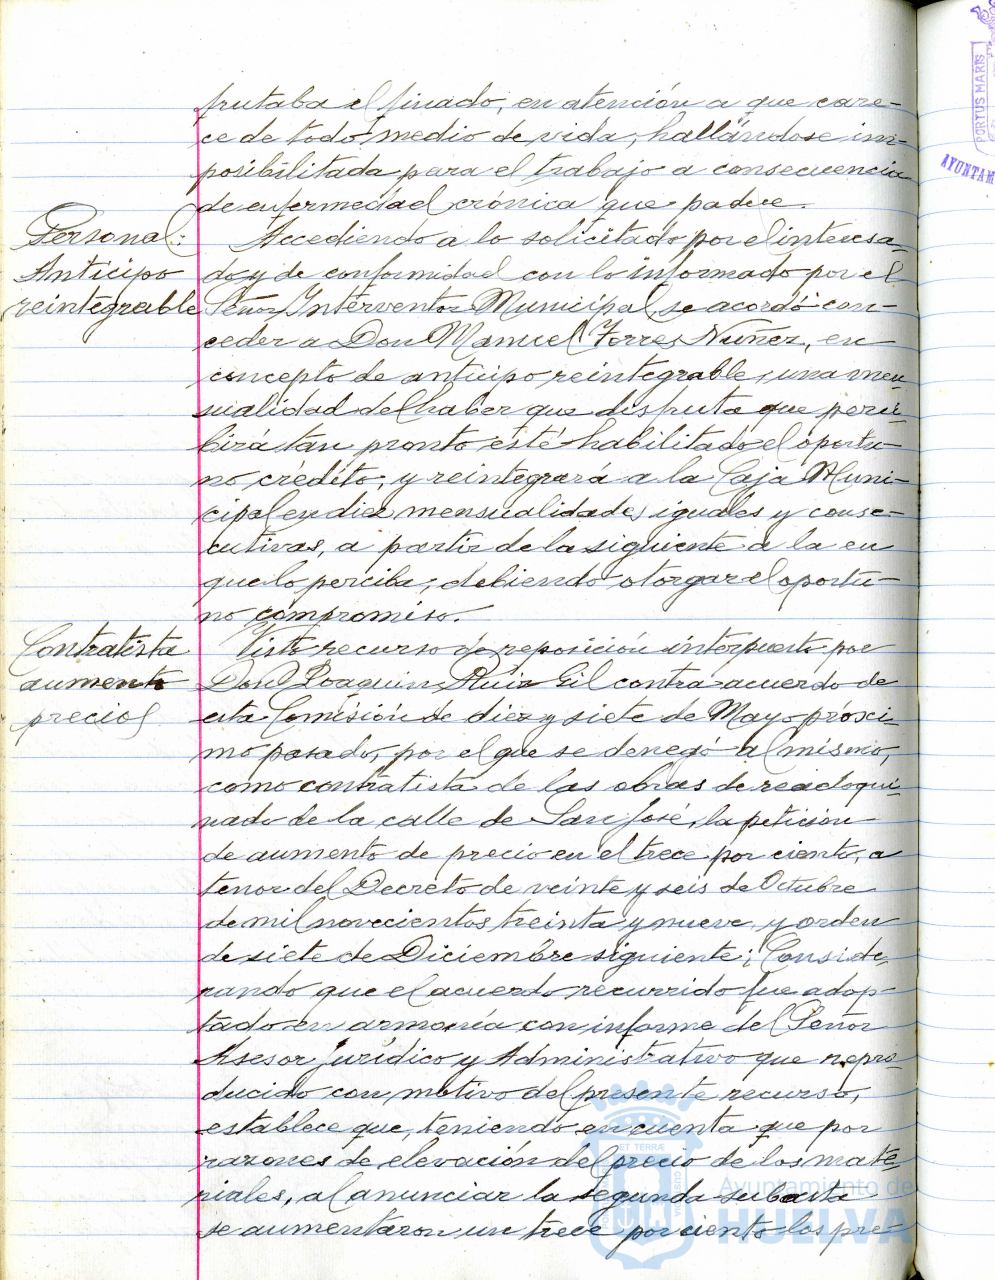 frutaba el finado, en atención a que care-
ce de todo medio de vida, hallándose im-
posibilitada para el trabajo a consecuencia
de enfermedad crónica que padece.
Personal:
Anticipo
reintegrable
Accediendo a lo solicitado por el interesa-
do y de conformidad con lo informado por el
Señor Interventor Municipal, se acordó con-
ceder a Don Manuel Torres Nuñez, en
concepto de anticipo reintegrable, una men-
sualidad del haber que disfruta que perci-
birá tan pronto esté habilitado el oportu-
no crédito, y reintegrará a la Caja Muni-
cipal en diez mensualidades iguales y conse-
cutivas, a partir de la siguiente a la en
que lo perciba; debiendo otorgar el oportu-
no compromiso.
Contratista
aumento
precios
Visto recurso de reposición interpuesto por
Don Joaquin Ruiz Gil contra acuerdo de
esta Comisión de diez y siete de Mayo próxi-
mo pasado, por el que se denegó al mismo,
como contratista de las obras de readoqui-
nado de la calle de San José, la petición
de aumento de precio en el trece por ciento, a
tenor del Decreto de veinte y seis de Octubre
de mil novecientos treinta y nueve y orden
de siete de Diciembre siguiente; Conside-
rando que el acuerdo recurrido fue adop-
tado en armonía con informe del Señor
Asesor Jurídico y Administrativo que repro-
ducido con motivo del presente recurso,
establece que, teniendo en cuenta que por
razones de elevación del precio de los mate-
riales, al anunciar la segunda subasta
se aumentaron un trece por ciento los pre-
PORTUS MARIS
AYUNTAM
Ayuntamiento de
HUELVA